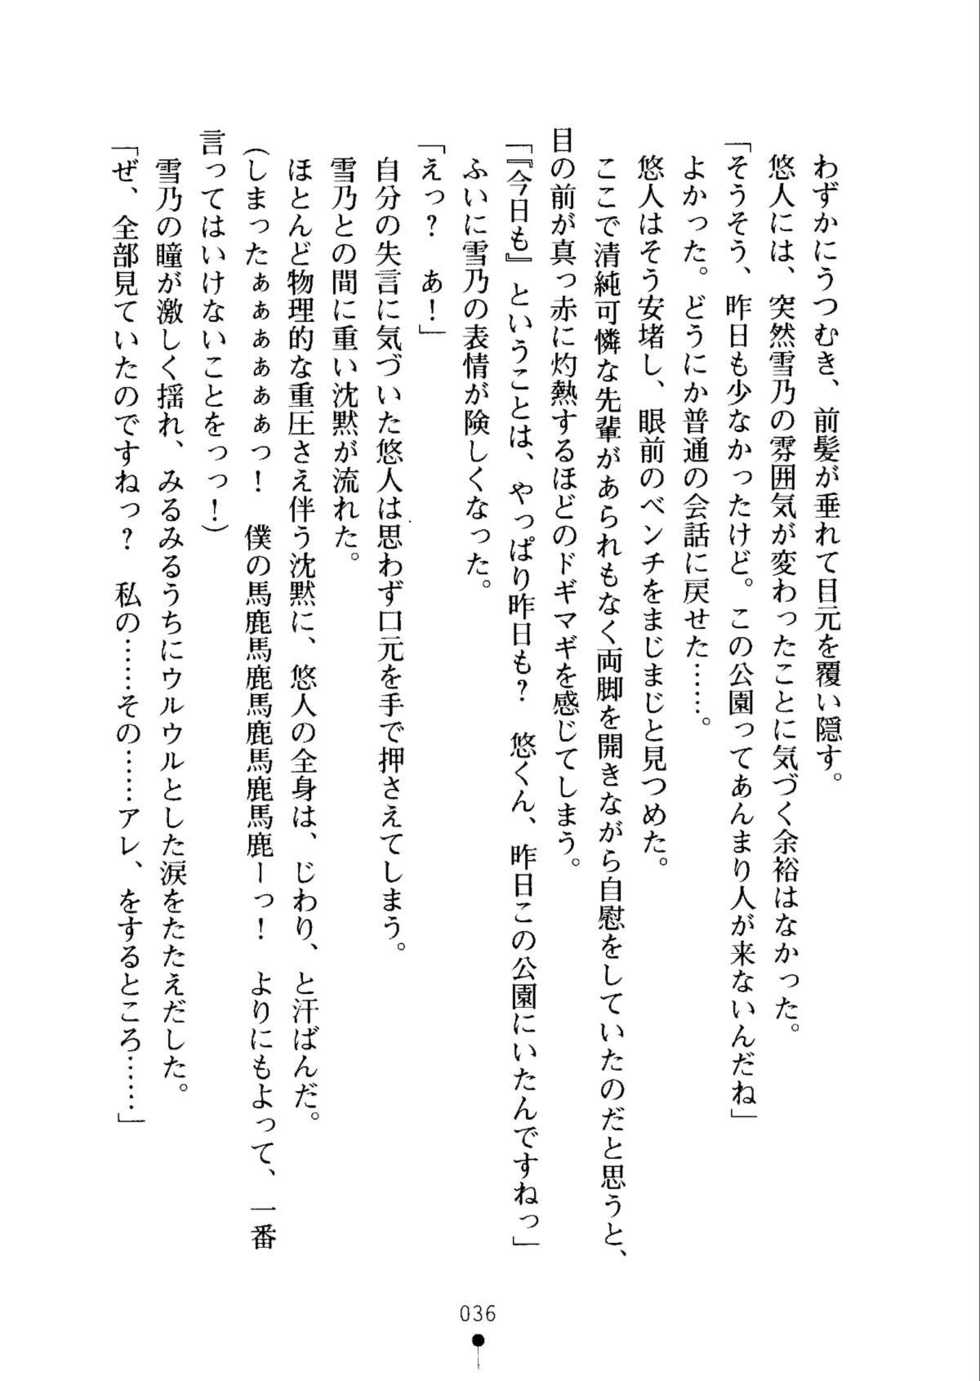 わずかにうつむき、前髪が垂れて目元を覆い隠す。
悠人には、突然雪乃の雰囲気が変わったことに気づく余裕はなかった。
「そうそう、昨日も少なかったけど。この公園ってあんまり人が来ないんだね」
よかった。どうにか普通の会話に戻せた……。
悠人はそう安堵し、眼前のベンチをまじまじと見つめた。
ここで清純可憐な先輩があられもなく両脚を開きながら自慰をしていたのだと思うと、
目の前が真っ赤に灼熱するほどのドギマギを感じてしまう。
「『今日も』ということは、やっぱり昨日も？　悠くん、昨日この公園にいたんですねっ」
ふいに雪乃の表情が険しくなった。
「えっ？　あ！」
自分の失言に気づいた悠人は思わず口元を手で押さえてしまう。
雪乃との間に重い沈黙が流れた。
ほとんど物理的な重圧さえ伴う沈黙に、悠人の全身は、じわり、と汗ばんだ。
（しまったぁぁぁぁぁぁっ！　僕の馬鹿馬鹿馬鹿馬鹿馬鹿ーっ！　よりにもよって、一番
言ってはいけないことをっっ！）
雪乃の瞳が激しく揺れ、みるみるうちにウルウルとした涙をたたえだした。
「ぜ、全部見ていたのですねっ？　私の……その……アレ、をするところ……」
036